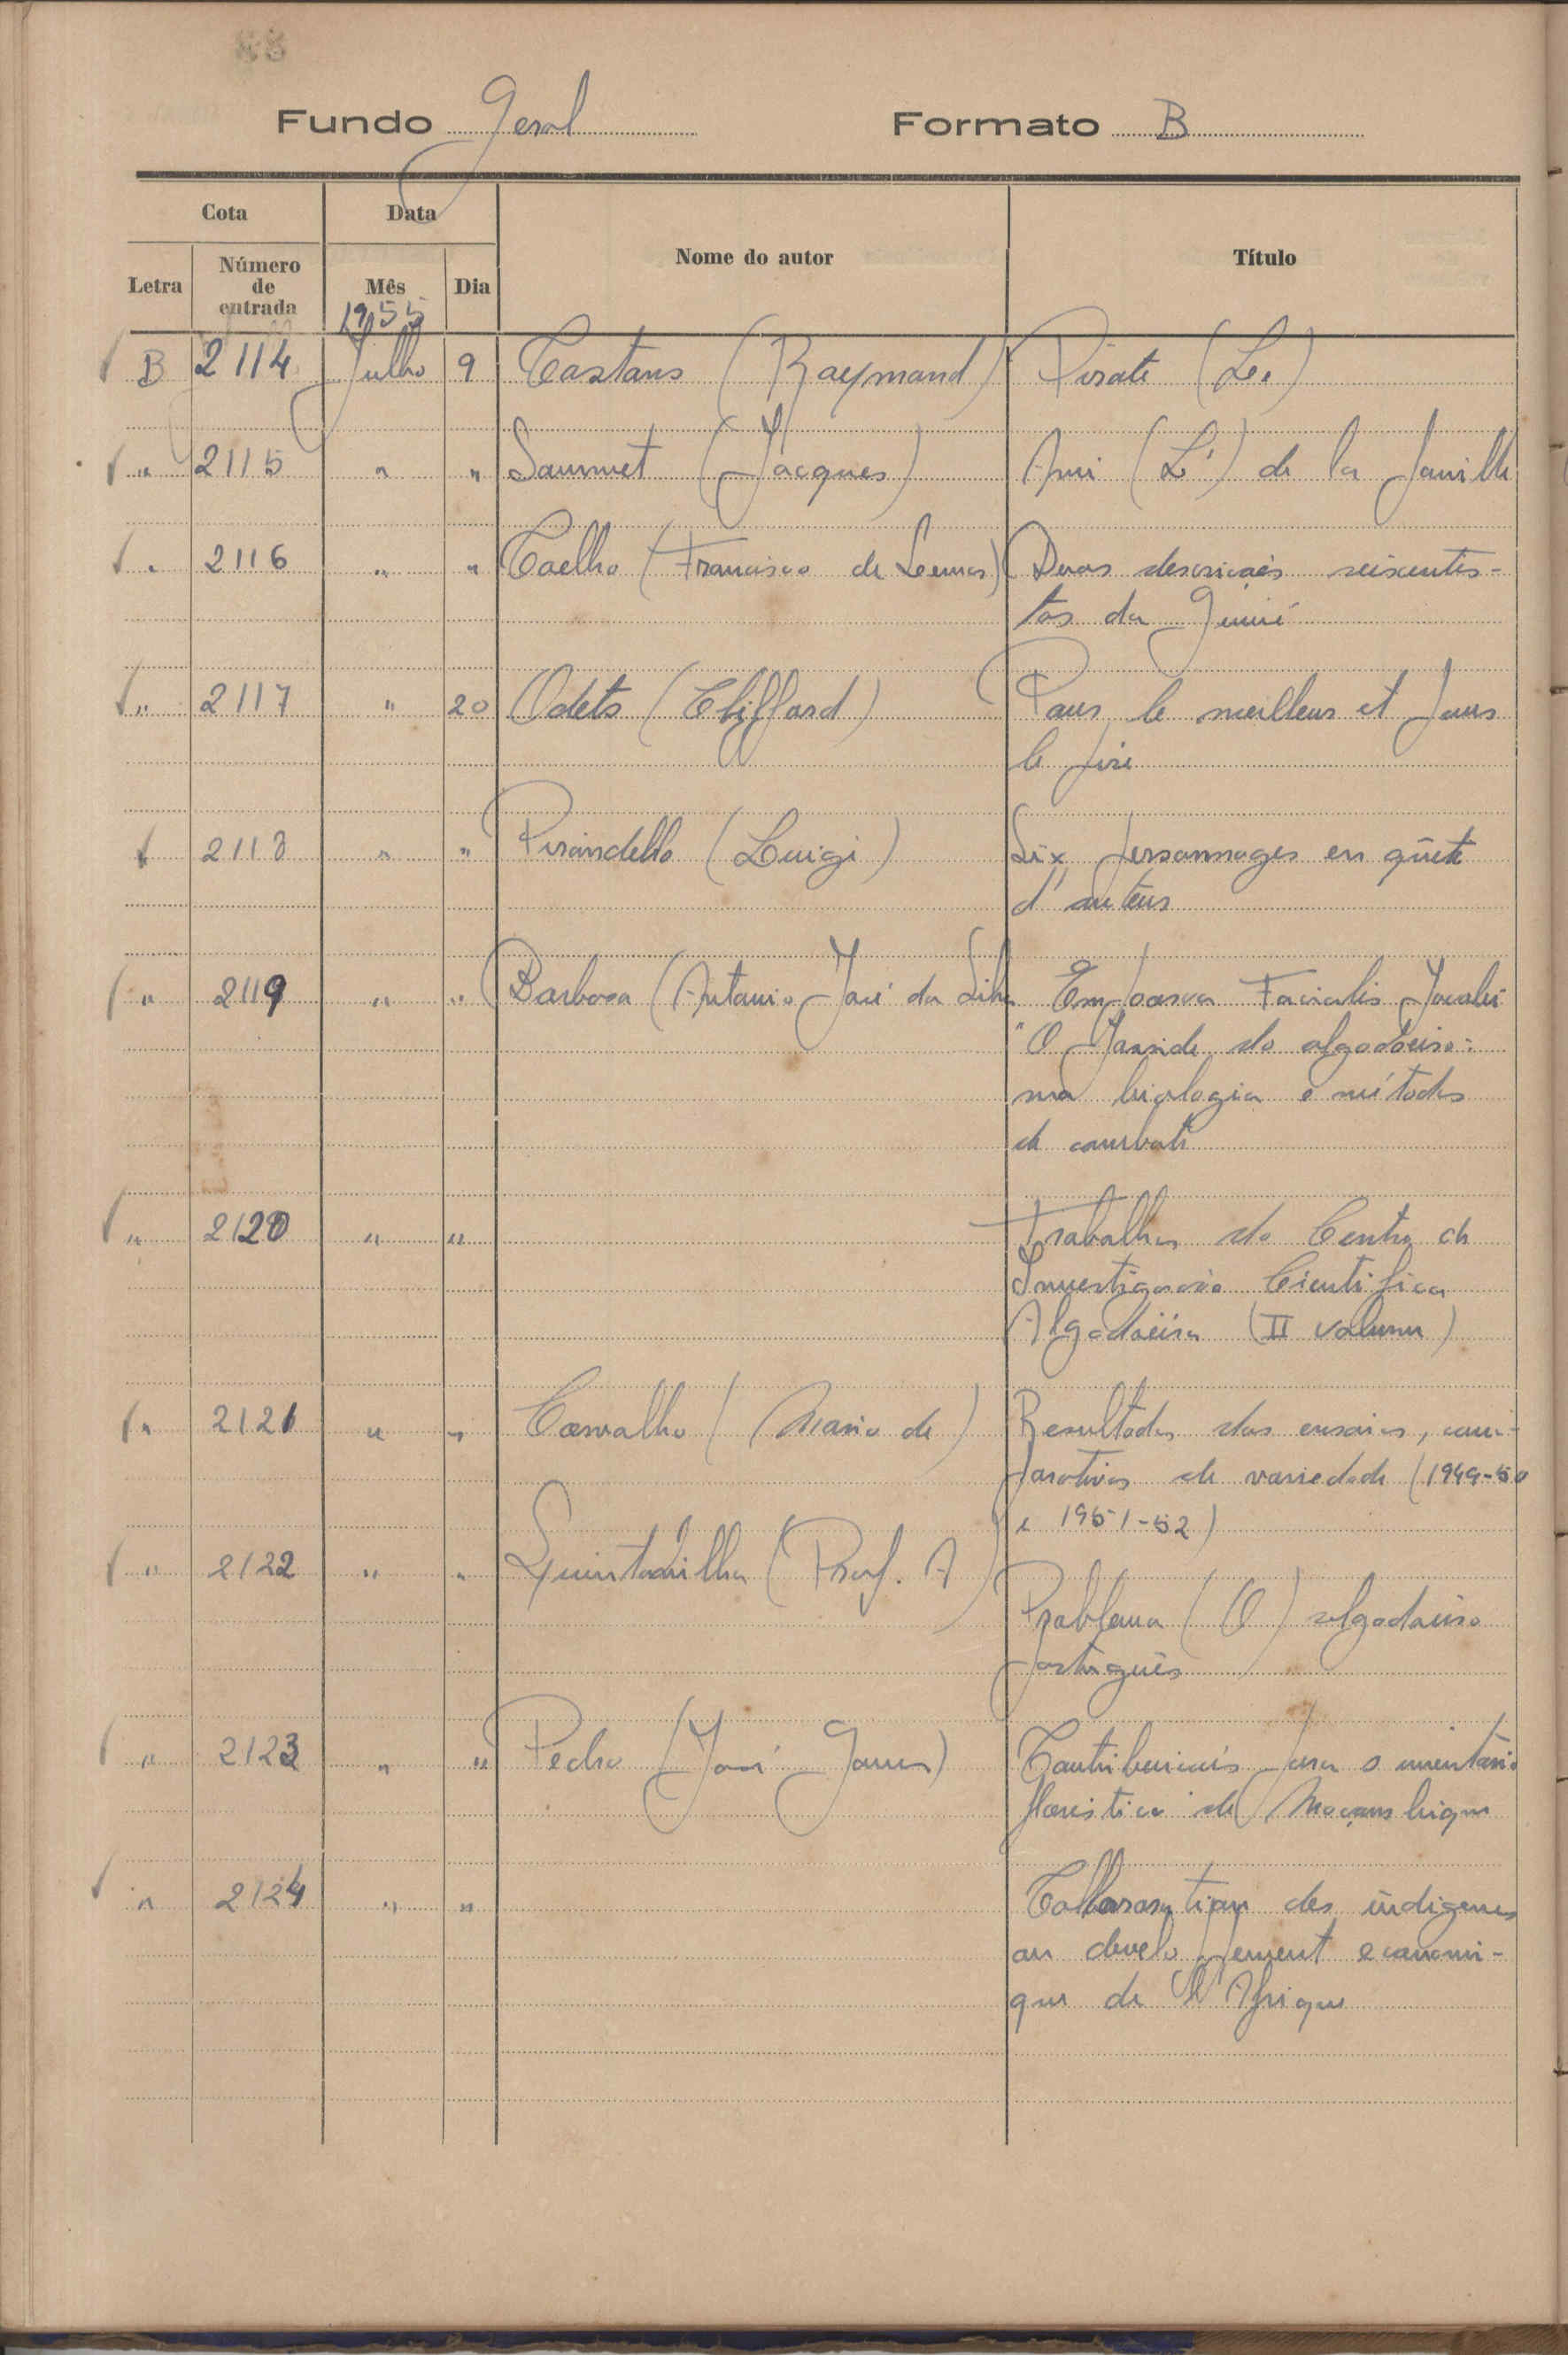 Fundo Geral Formato B
Cota Data Nome do autor Título
Letra Número de entrada Mês Dia
1955
B 2114 Julho 9 Castans (Raymond) Pirate (Le)
" 2115 " " Sammet (Jacques) Ami (L') de la famille
" 2116 " " Coelho (Francisco de Lemos) Duas descrições seiscentis-
tas da Guiné
" 2117 " 20 Odets (Clifford) Pour le meilleur et pour
le pire
2118 " " Pirandello (Luigi) Six personnages en quête
d'auteur
" 2119 " " Barbosa (Antonio José da Silva Empoasca Facialis Jacobi
"O Jasside do algodoeiro:
sua biologia e métodos
de combate
" 2120 " " Trabalhos do Centro de
Investigação Cientifica
Algodoeira (II volume)
" 2121 " " Carvalho (Mario de) Resultados dos ensaios, com-
parativos de variedade (1949-50
e 1951-52)
" 2122 " " Quintanilha (Prof. A) Problema (O) algodoeiro
português
" 2123 " " Pedro (José Gomes) Contribuições para o inventário
floristico de Moçambique
" 2124 " " Collaboration des indigenes
au developpement economi-
que de l'Afrique